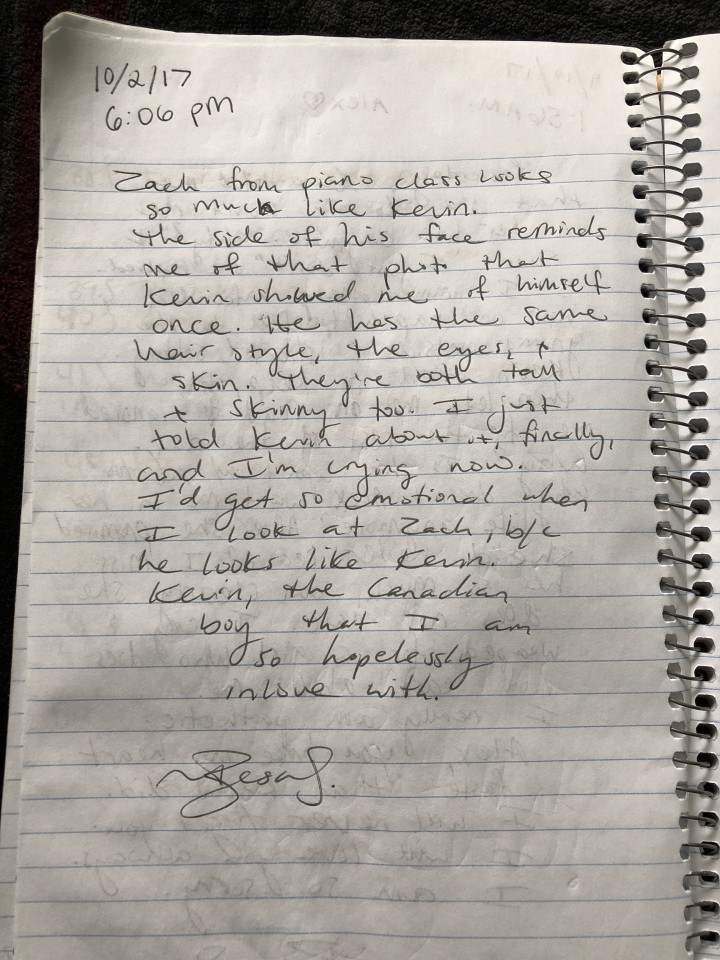 10/2/17
6:06 pm
Zach from piano class looks
so much like Kevin.
The side of his face reminds
me of that photo that
Kevin showed me of himself
once. He has the same
hair style, the eyes, +
skin. They're both tall
+ skinny too. I just
told Kevin about it, finally,
and I'm crying now.
I'd get so emotional when
I look at Zach, b/c
he looks like Kevin.
Kevin, the Canadian
boy that I am
so hopelessly
inlove with.